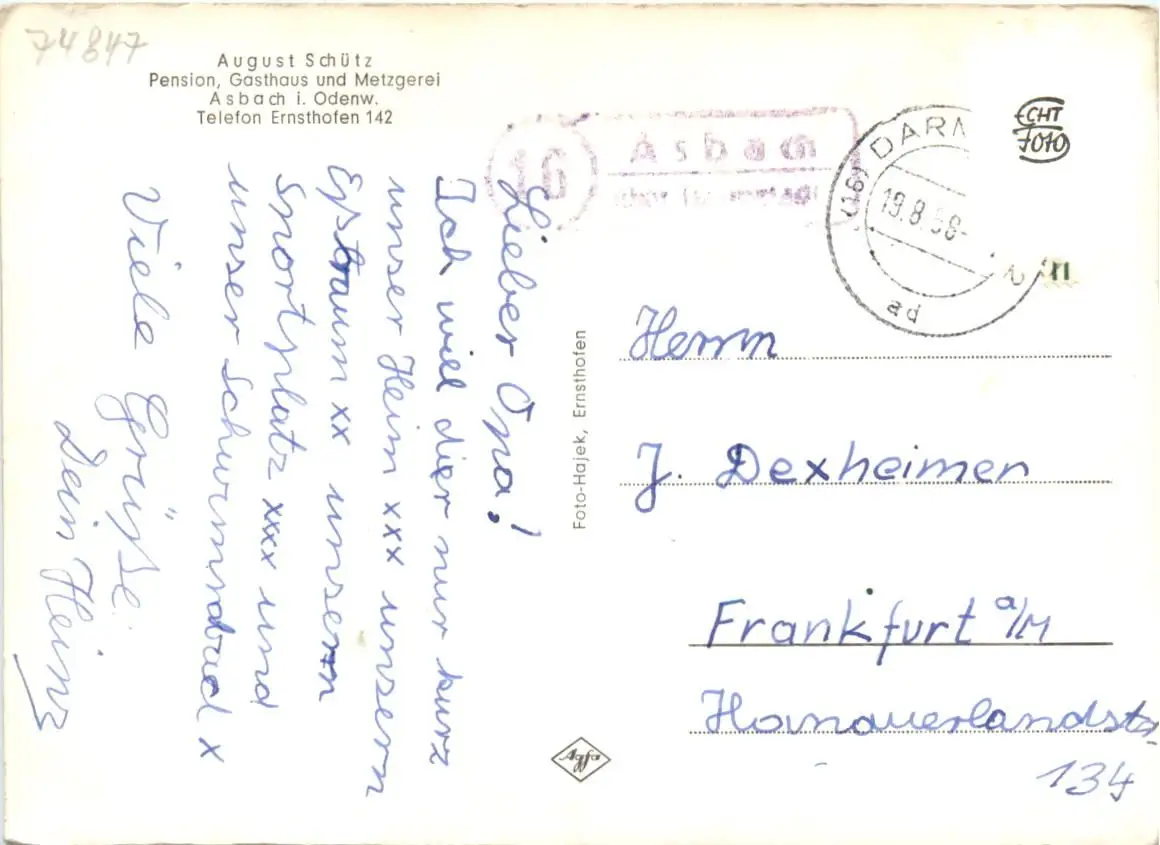 74847
August Schütz
Pension, Gasthaus und Metzgerei
Asbach i. Odenw.
Telefon Ernsthofen 142
16
Asbach
über
(16) DARM
ad
19.8.58-
ECHT
FOTO
Lieber Opa!
Ich will dier nur kurz
unser Heim xxx unsern
Eßraum xx unsern
Sportplatz xxxx und
unser schwimmbad x
Viele Grüße
Dein Heinz
Foto-Hajek, Ernsthofen
Agfa
Herrn
J. Dexheimer
Frankfurt a/M
Hanauerlandstr.
134